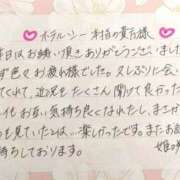 ホテル・シー 本指の貴方様
昨日はお誘い頂きありがとうございました
ず色々お疲れ様でした。久しぶりに会い
てくれて、近況をたくさん聞けて良かった
イもお互い気持ち良くなれたし、まさか
を見ていた2人は…楽しかったです。またお
待ちしております。